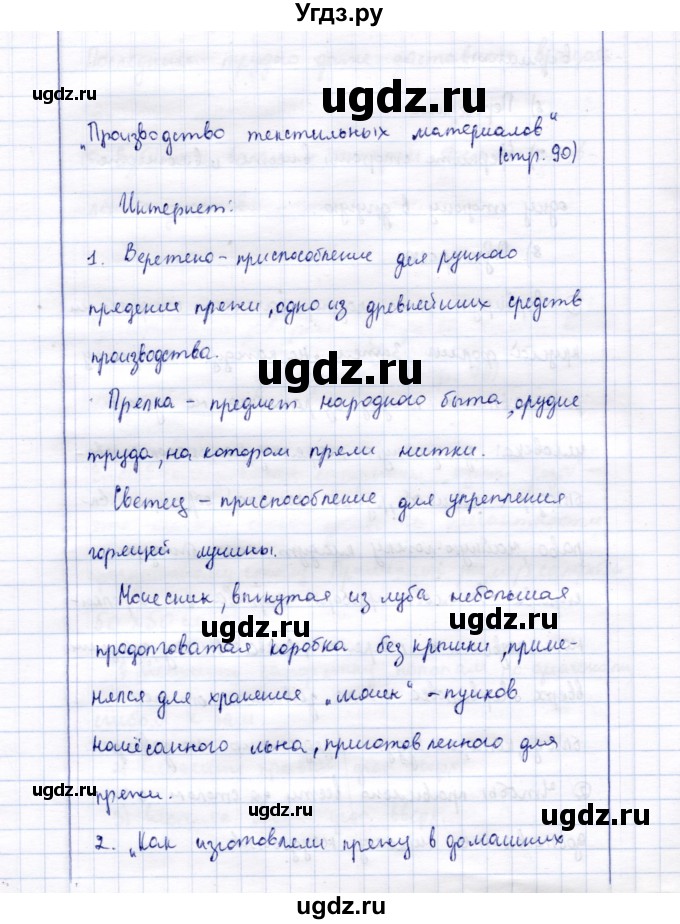 Угдз.ру
ugdz.ru ugdz.ru ugdz.ru
„Производство текстильных материалов“
(стр. 90)
Интернет:
1. Веретено - приспособление для ручного
прядения пряжи, одно из древнейших средств
производства.
ugdz.ru ugdz.ru
Прялка - предмет народного быта, орудие
труда, на котором пряли нитки.
Светец - приспособление для укрепления
горящей лучины.
Мочесник, выгнутая из луба небольшая
ugdz.ru ugdz.ru
продолговатая коробка без крышки, приме-
нялся для хранения „мочек“ - пучков
начёсанного льна, приготовленного для
пряжи.
ugdz.ru ugdz.ru ugdz.ru
2. „Как изготовляли пряжу в домашних
Угдз.ру